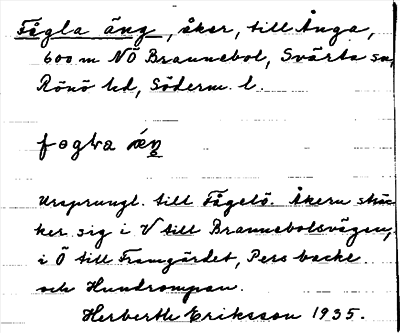 Fågla äng, åker, till Ånga,
600 m NÖ Brannebol, Svärta sn,
Rönö hd, Söderm. l.
Ursprungl. till Fågelö. Åkern sträc
ker sig i V till Brannebolsvägen,
i Ö till Framgärdet, Pers backe
och Hundrompan.
Herberth Eriksson 1935.